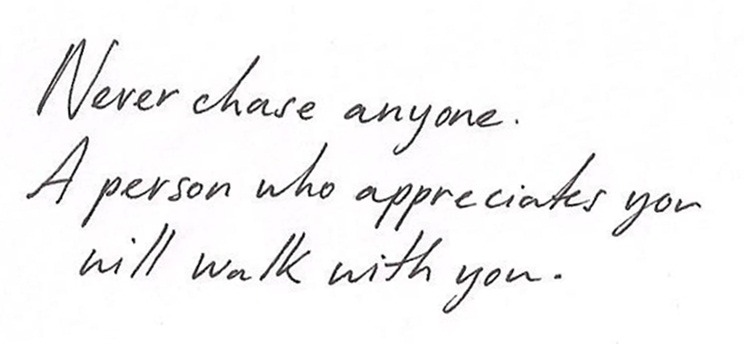 Never chase anyone.
A person who appreciates you
will walk with you.